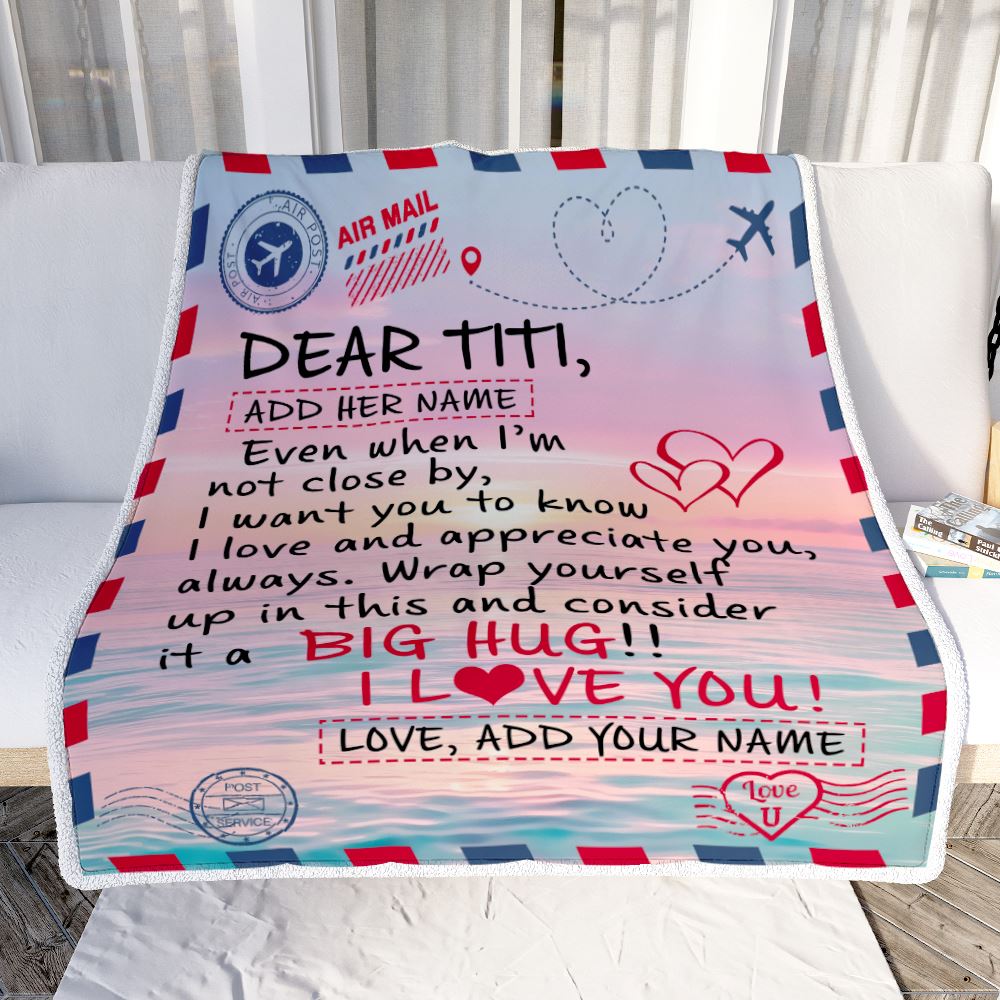 AIR POST
AIR POST
AIR MAIL
DEAR TITI,
ADD HER NAME
Even when I'm
not close by,
I want you to know
I love and appreciate you,
always. Wrap yourself
up in this and consider
it a BIG HUG!!
I L♥VE YOU!
LOVE, ADD YOUR NAME
POST
SERVICE
Love
U
The
Calling
Paul